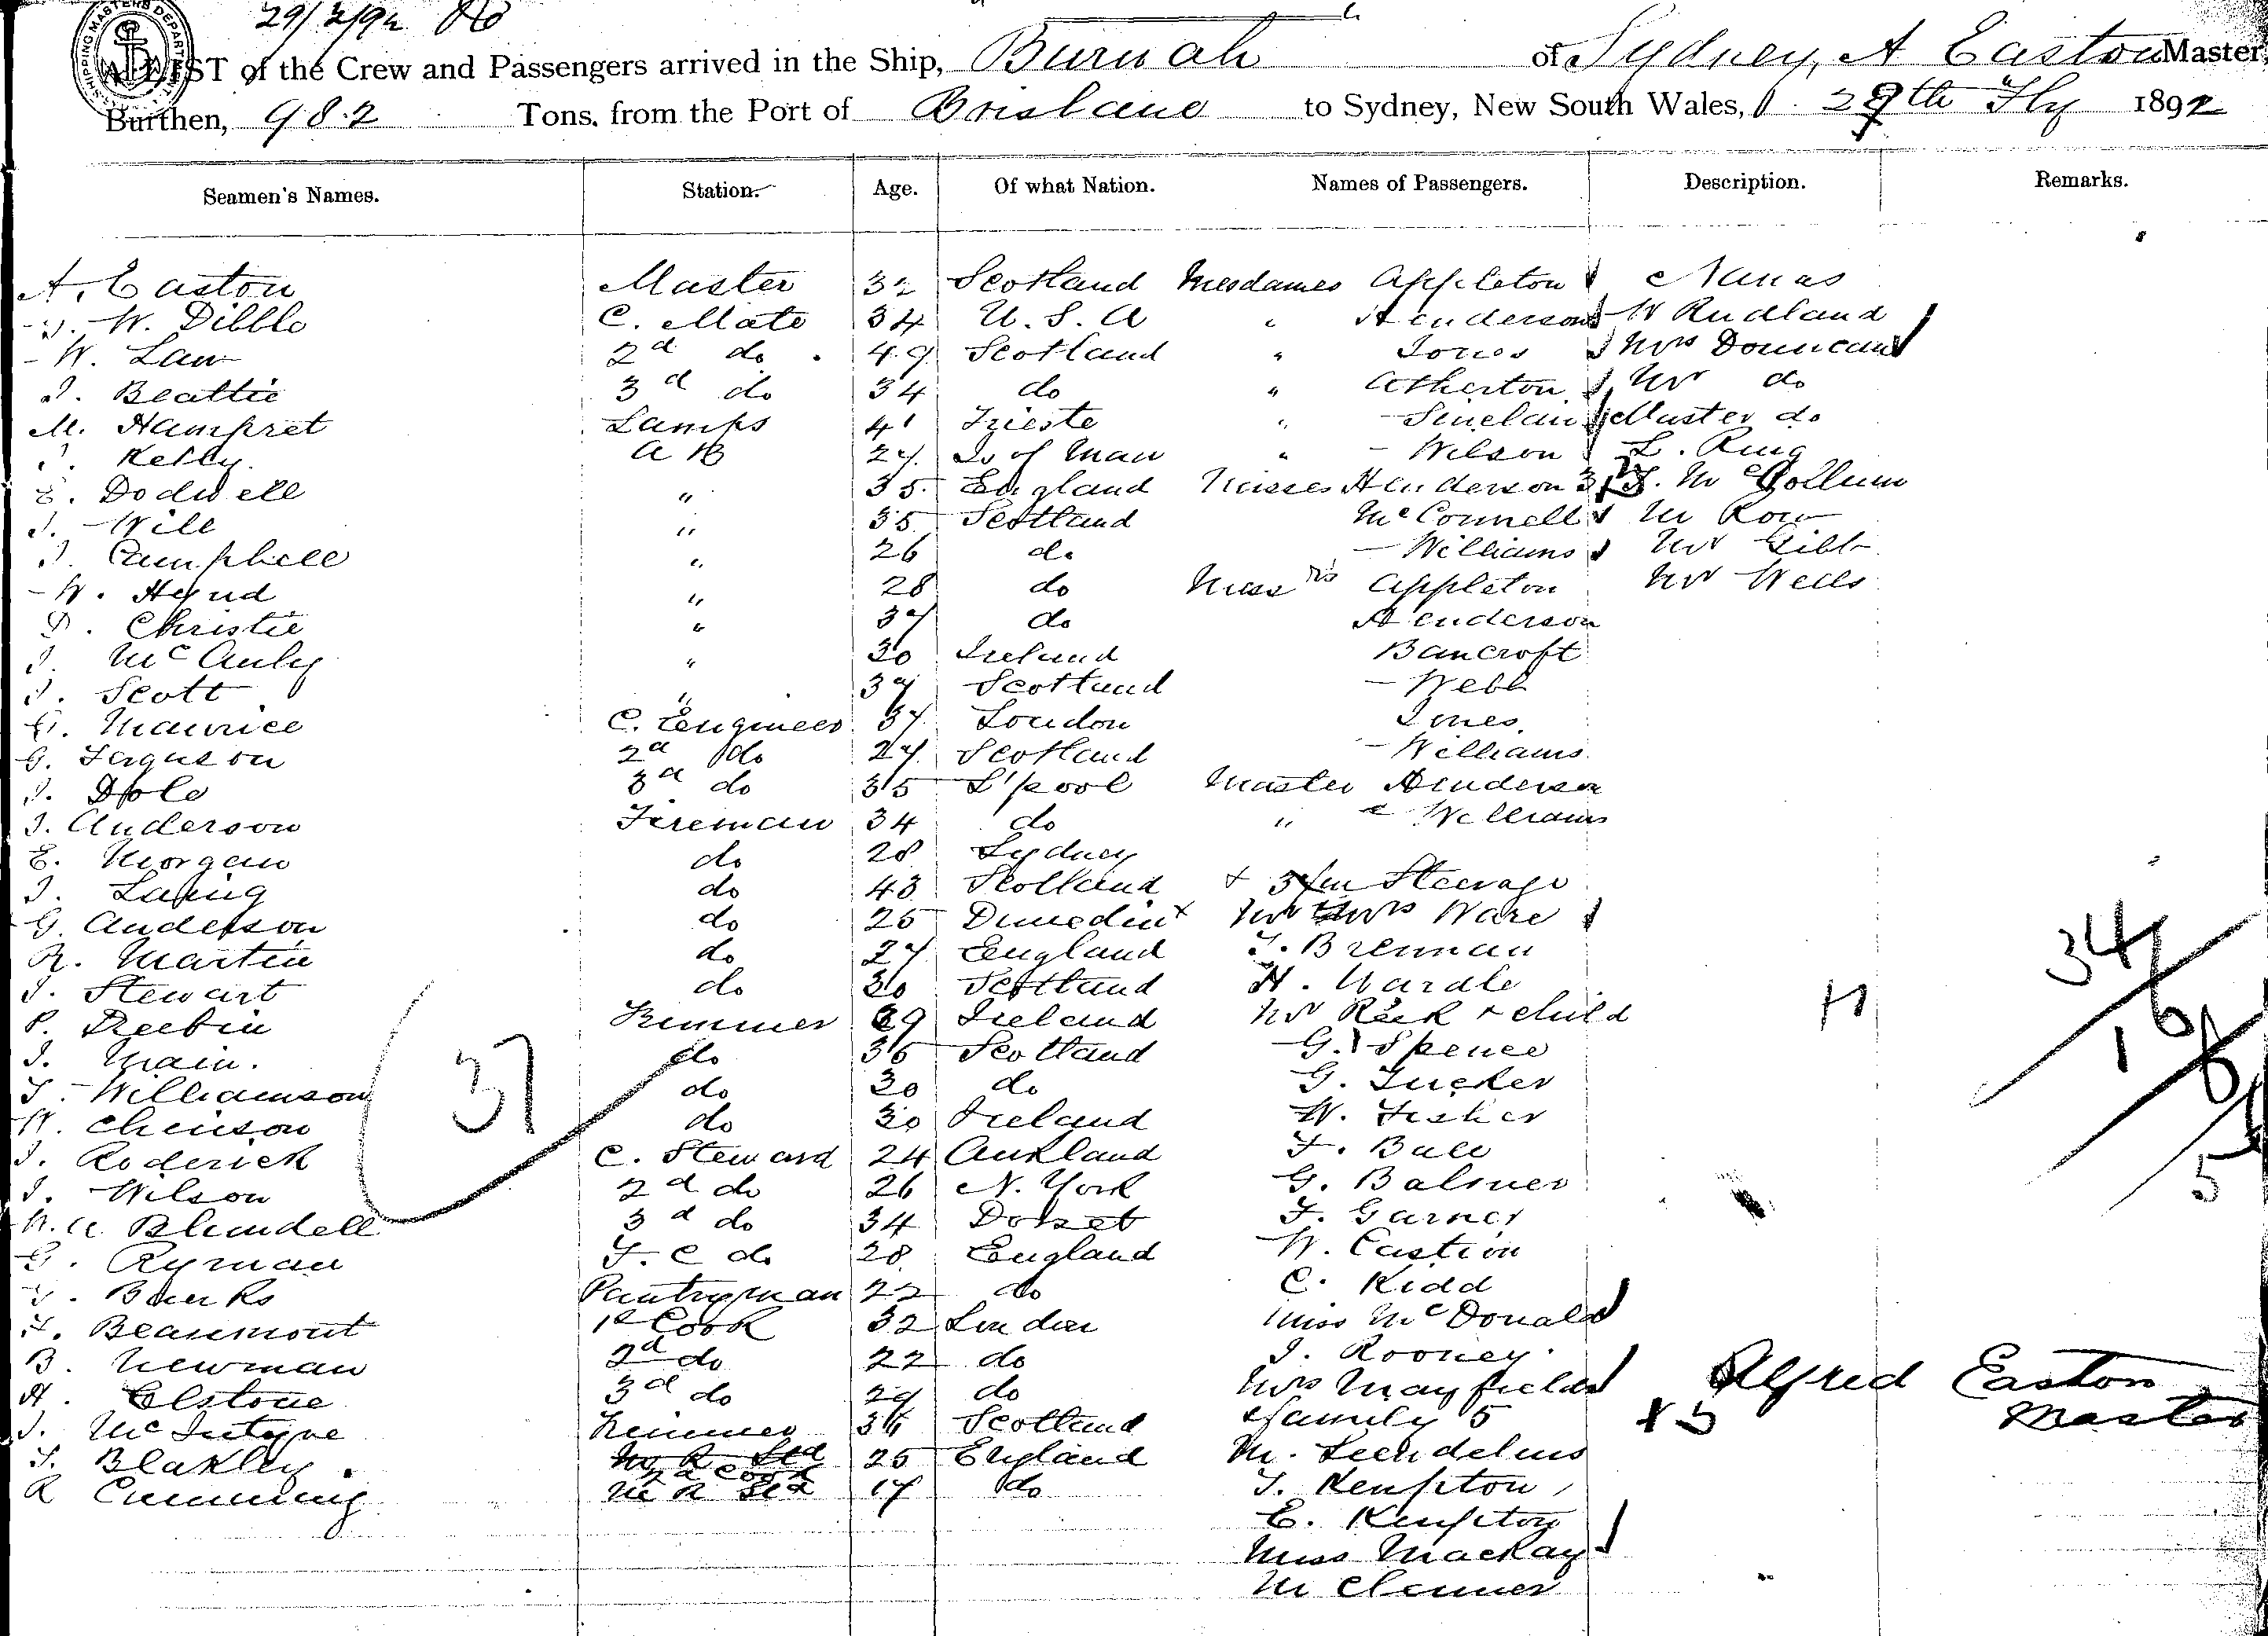 29/2/92
SHIPPING MASTERS DEPARTMENT
A LIST of the Crew and Passengers arrived in the Ship, Burwah of Sydney, A Easton Master,
Burthen, 982 Tons. from the Port of Brisbane to Sydney, New South Wales, 29th Fby 1892
Seamen's Names. Station. Age. Of what Nation. Names of Passengers. Description. Remarks.
A. Easton Master 32 Scotland Mesdames Appleton Nanas
W. Dibble C. Mate 34 U.S.A " Henderson W Rudland
W. Law 2d do 49 Scotland " Jones Mrs Donncan
J. Beattie 3d do 34 do " Atherton Mr do
M. Hampret Lamps 41 Trieste " Sinclair Master do
Kelly AB 27 Is of Man " Wilson L. Ring
E. Dodwell " 35 England Misses Henderson 3 J. McCollum
J. Will " 35 Scotland McConnell M Row
J. Campbell " 26 do Williams Mr Gibb
W. Hynd " 28 do Messrs Appleton Mr Wells
D. Christie " 37 do Henderson
J. McAuly " 30 Ireland Bancroft
J. Scott " 37 Scotland Webb
G. Maurice C. Engineer 37 London Jones
G. Ferguson 2d do 27 Scotland Williams
J. Dole 3d do 35 L'pool Master Henderson
J. Anderson Fireman 34 do " Williams
E. Morgan do 28 Sydney
J. Laking do 43 Scotland + 34 in Steerage
G. Anderson do 25 Dunedin + Mr & Mrs Ware
R. Martin do 27 England T. Brennan
J. Stewart do 30 Scotland H. Wardle
P. Deebin Trimmer 29 Ireland Mr Reek + child
J. Main. do 36 Scotland G. Spence
T. Williamson do 30 do G. Tucker
W. Chinson do 30 Ireland W. Fisher
J. Roderick C. Steward 24 Auckland F. Ball
J. Wilson 2d do 26 N. York G. Balmer
W.A. Blundell 3d do 34 Dorset F. Garner
G. Ryman F.C do 28 England W. Castion
Banks Pantryman 22 do C. Kidd
H. Beaumont 1st Cook 32 London Miss McDonald
B. Newman 2d do 22 do J. Rooney
A. Elstone 3d do 29 do Mrs Mayfield Alfred Easton
J. McIntyre Trimmer 36 Scotland & family 5 x5 Master
T. Blakley 2d Cook 25 England M. Lindelms
R Cumming M R Std 17 do T. Kempton
E. Kempton
Miss Mackay
M Clenner
37
34
16
5